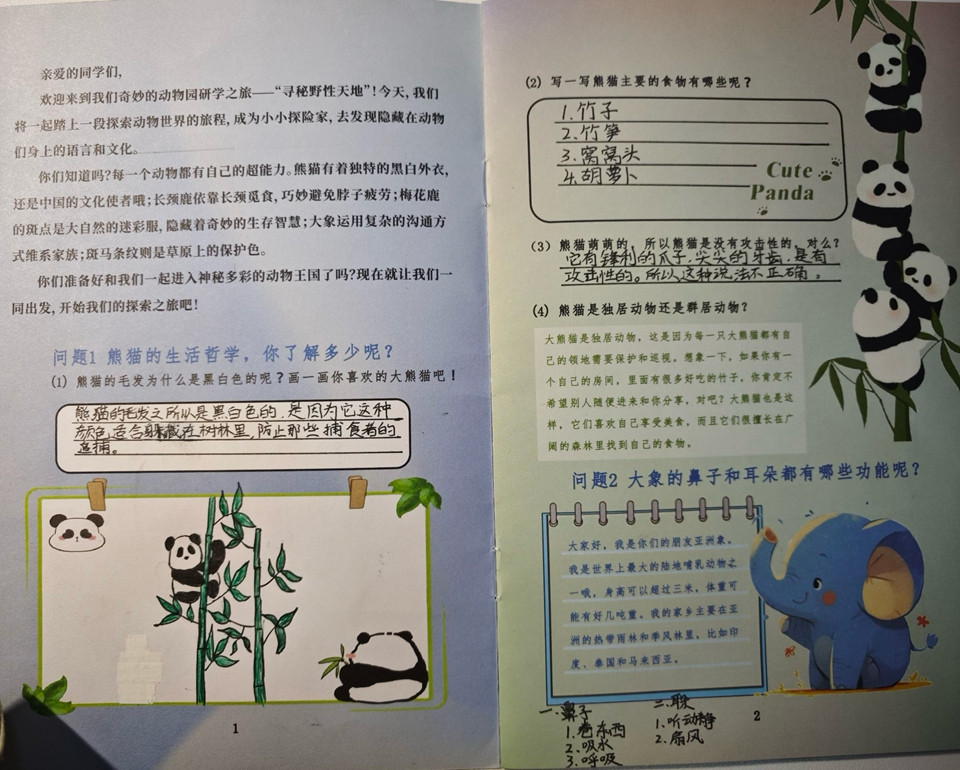 亲爱的同学们,
欢迎来到我们奇妙的动物园研学之旅——“寻秘野性天地”!今天,我们
将一起踏上一段探索动物世界的旅程,成为小小探险家,去发现隐藏在动物
们身上的语言和文化。
你们知道吗?每一个动物都有自己的超能力。熊猫有着独特的黑白外衣,
还是中国的文化使者哦;长颈鹿依靠长颈觅食,巧妙避免脖子疲劳;梅花鹿
的斑点是大自然的迷彩服,隐藏着奇妙的生存智慧;大象运用复杂的沟通方
式维系家族;斑马条纹则是草原上的保护色。
你们准备好和我们一起进入神秘多彩的动物王国了吗?现在就让我们一
同出发,开始我们的探索之旅吧!
问题1 熊猫的生活哲学,你了解多少呢?
(1) 熊猫的毛发为什么是黑白色的呢?画一画你喜欢的大熊猫吧!
熊猫的毛发之所以是黑白色的,是因为它这种
颜色适合躲藏在树林里,防止那些捕食者的
追捕。
1
(2) 写一写熊猫主要的食物有哪些呢?
1.竹子
2.竹笋
3.窝窝头
4.胡萝卜
Cute
Panda
(3) 熊猫萌萌的,所以熊猫是没有攻击性的,对么?
它有锋利的爪子,尖尖的牙齿,是有
攻击性的。所以这种说法不正确。
(4) 熊猫是独居动物还是群居动物?
大熊猫是独居动物,这是因为每一只大熊猫都有自
己的领地需要保护和巡视。想象一下,如果你有一
个自己的房间,里面有很多好吃的竹子,你肯定不
希望别人随便进来和你分享,对吧?大熊猫也是这
样,它们喜欢自己享受美食,而且它们很擅长在广
阔的森林里找到自己的食物。
问题2 大象的鼻子和耳朵都有哪些功能呢?
大家好,我是你们的朋友亚洲象。
我是世界上最大的陆地哺乳动物之
一哦,身高可以超过三米,体重可
能有好几吨重。我的家乡主要在亚
洲的热带雨林和季风林里,比如印
度、泰国和马来西亚。
一.鼻子
1.卷东西
2.吸水
3.呼吸
二.耳朵
1.听动静
2.扇风
2